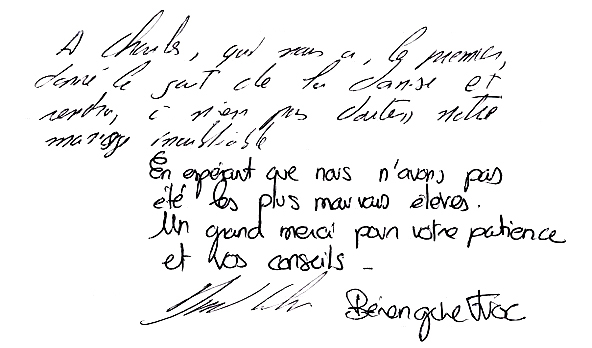 A Charles, qui nous a, le premier,
donné le goût de la danse et
rendra, à n'en pas douter, notre
mariage inoubliable
En espérant que nous n'avons pas
été les plus mauvais élèves.
Un grand merci pour votre patience
et vos conseils _